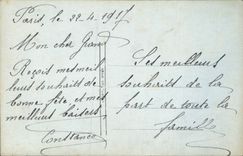 Paris, le 22.4.1917
Mon cher Grand
Reçois mes meil
leurs souhaits de
bonne fête, et mes
meilleurs baisers.
Constance
Les meilleurs
souhaits de la
part de toute la
famille